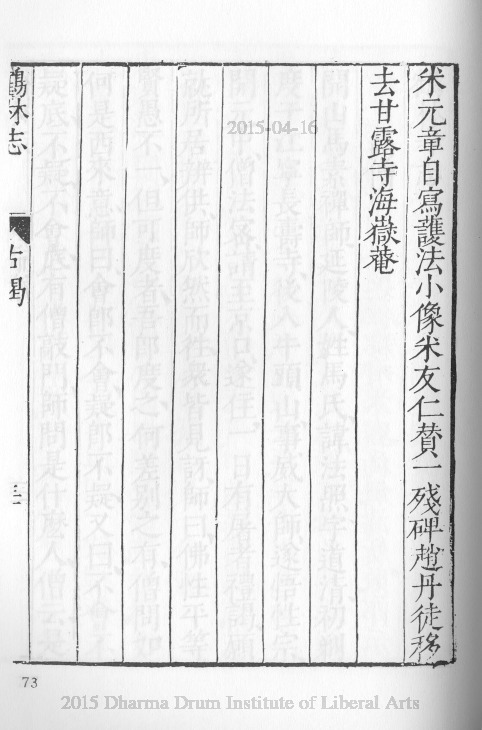 米元章自寫護法小像米友仁贊一殘碑趙丹徒移
去甘露寺海嶽菴
鶴林志
古蹟
三
2015-04-16
73
2015 Dharma Drum Institute of Liberal Arts